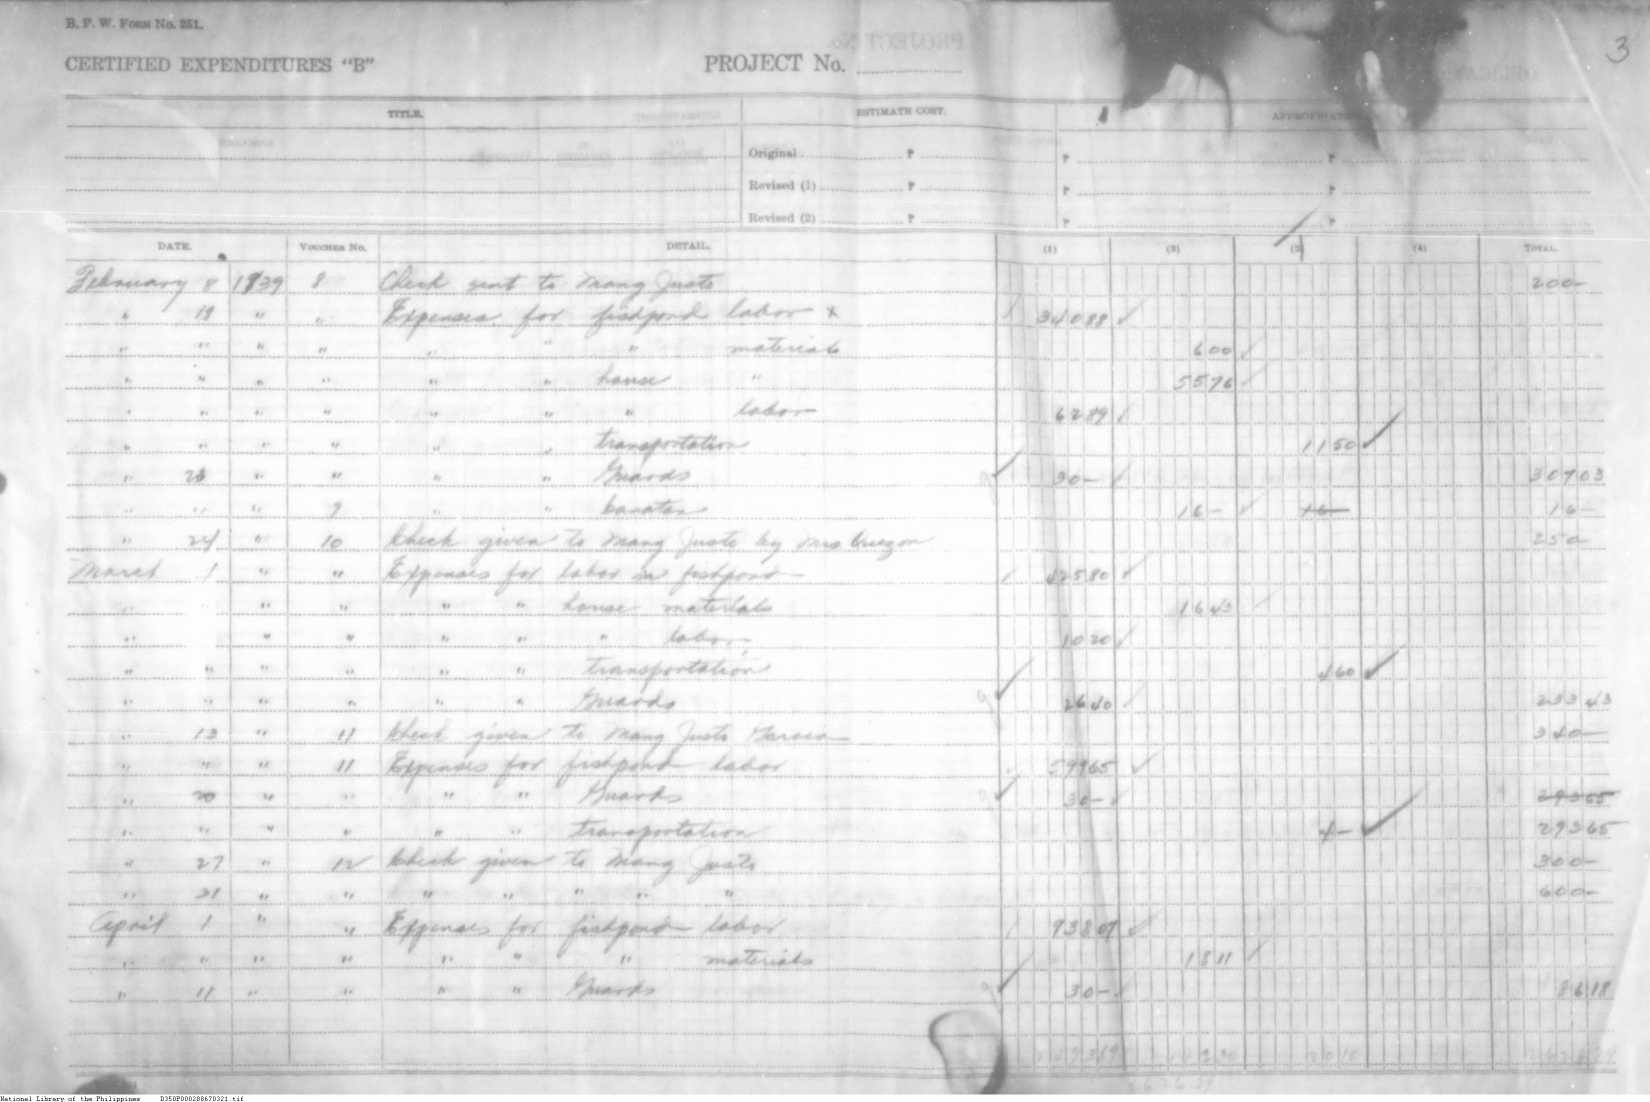 B. P. W. FORM No. 251.
3
CERTIFIED EXPENDITURES "B"
PROJECT No.
TITLE.
ESTIMATE COST.
Original P P P
Revised (1) P P P
Revised (2) P P P
DATE. VOUCHER No. DETAIL. (1) (2) (3) (4) TOTAL.
February 8 1939 8 Check sent to Mang Justo 200-
" 19 " " Expenses for fishpond labor x 34088 ✓
" " " " " " " materials 600 ✓
" " " " " " house " 5576 ✓
" " " " " " " labor 6289 ✓
" " " " " " transportation 1150 ✓
" 23 " " " " Guards 30- ✓ 30703
" " " 9 " " 16- ✓ 16- 16-
" 24 " 10 Check given to Mang Justo by Mrs Quezon 250-
March 1 " " Expenses for labor in fishpond 42580 ✓
" " " " " " house materials 1643
" " " " " " labor 1020 ✓
" " " " " " transportation 460 ✓
" " " " " " Guards 2640 ✓
" 13 " 11 Check given to Mang Justo Garcia 340-
" " " 11 Expenses for fishpond labor 59965 ✓
" 20 " " " " Guards 30- ✓ 29365
" " " " " " transportation 4- ✓ 29365
" 27 " 12 Check given to Mang Justo 300-
" 31 " " " " " " " 600-
April 1 " " Expenses for fishpond labor 93807 ✓
" " " " " " " materials 1811 ✓
" 11 " " " " Guards 30- ✓ 8618
National Library of the Philippines D350P000288670321.tif